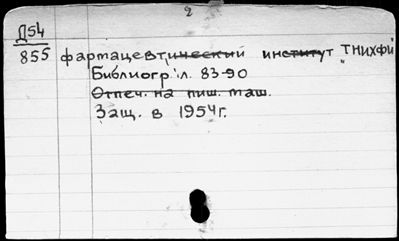 2
Д54
855 фармацевтический институт ТНИХФИ
Библиогр: л. 83-90
Отпеч. на пиш. маш.
Защ. в 1954г.